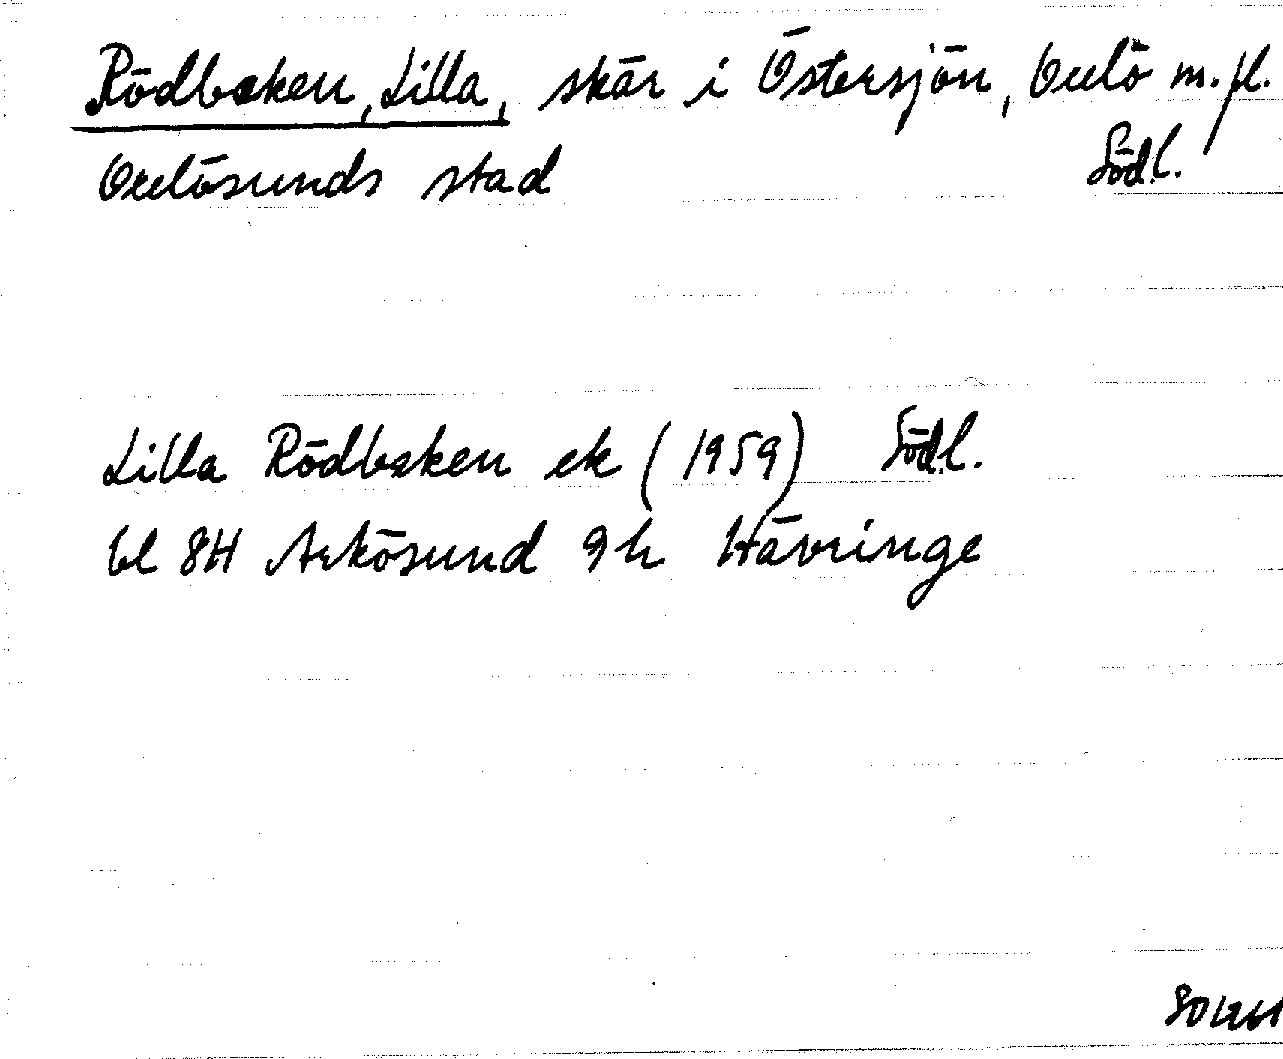 Rödbåken, Lilla, skär i Östersjön, Oxelö m. fl.
Oxelösunds stad Södl.
Lilla Rödbåken ek (1959) Södl.
bl 8H Arkösund 9h Hävringe